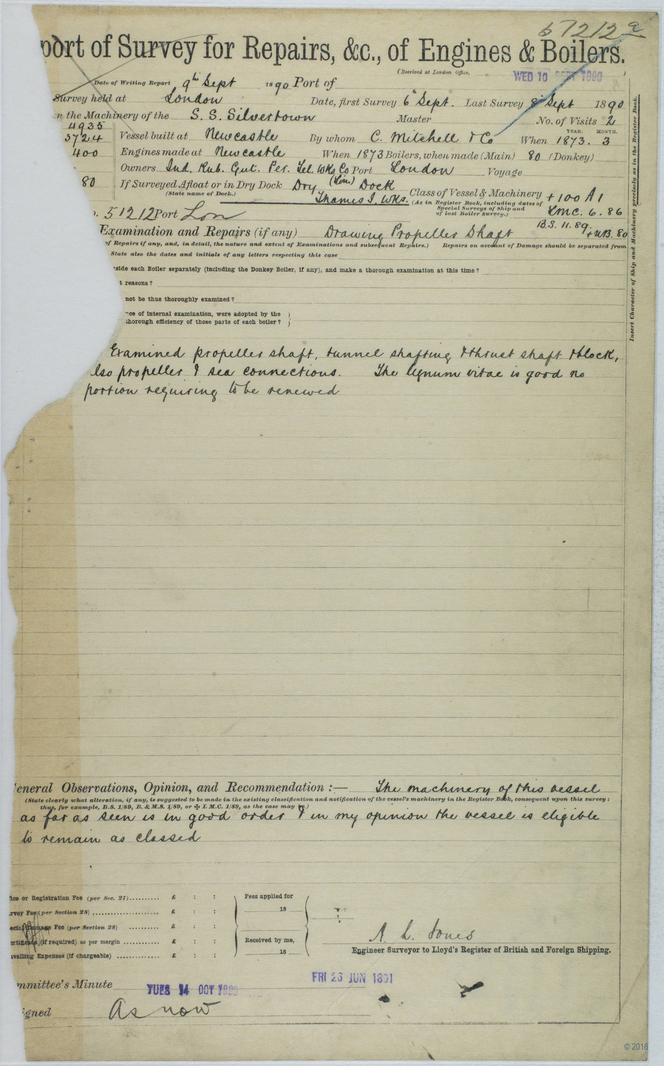 57212a
port of Survey for Repairs, &c., of Engines & Boilers.
(Received at London Office,
WED 10 SEPT 1890
Date of Writing Report 9th Sept 1890 Port of
Survey held at London Date, first Survey 6th Sept. Last Survey 8th Sept 1890
n the Machinery of the S. S. Silvertown Master No. of Visits 2
4935
YEAR. MONTH.
3724 Vessel built at Newcastle By whom C. Mitchell & Co When 1873. 3
400 Engines made at Newcastle When 1873 Boilers, when made (Main) 80 (Donkey)
Owners Ind. Rub. Gut. Per. Tel. Wks Co (Lim) Port London Voyage
80 If Surveyed Afloat or in Dry Dock Dry Dock Class of Vessel & Machinery +100 A1
(State name of Dock.) Thames I. Wks. (As in Register Book, including dates of Special Surveys of Ship and of last Boiler Survey.) LMC. 6. 86
o. 51212 Port Lon B.S. 11.89 + NB. 80
Examination and Repairs (if any) Drawing Propeller Shaft
of Repairs if any, and, in detail, the nature and extent of Examinations and subsequent Repairs.) Repairs on account of Damage should be separated from
State also the dates and initials of any letters respecting this case
side each Boiler separately (including the Donkey Boiler, if any), and make a thorough examination at this time?
t reasons?
not be thus thoroughly examined?
ce of internal examination, were adopted by the
thorough efficiency of those parts of each boiler?
Insert Character of Ship and Machinery precisely as in the Register Book.
Examined propeller shaft, tunnel shafting & thrust shaft & block,
also propeller & sea connections. The lignum vitae is good no
portion requiring to be renewed
eneral Observations, Opinion, and Recommendation :— The machinery of this vessel
(State clearly what alteration, if any, is suggested to be made in the existing classification and notification of the vessel's machinery in the Register Book, consequent upon this survey :
thus, for example, B.S. 1/89, B. & M.S. 1/89, or ✠ L.M.C. 1/89, as the case may be)
as far as seen is in good order & in my opinion the vessel is eligible
to remain as classed
fice or Registration Fee (per Sec. 27).......... £ : :
rvey Fee (per Section 28) .......... £ : :
ecial Damage Fee (per Section 28) .......... £ : :
ertificate (if required) as per margin .......... £ : :
avelling Expenses (if chargeable) .......... £ : :
Fees applied for
18
Received by me,
18
A. L. Jones
Engineer Surveyor to Lloyd's Register of British and Foreign Shipping.
mmittee's Minute TUES 14 OCT 1890 FRI 26 JUN 1891
igned As now
© 2018